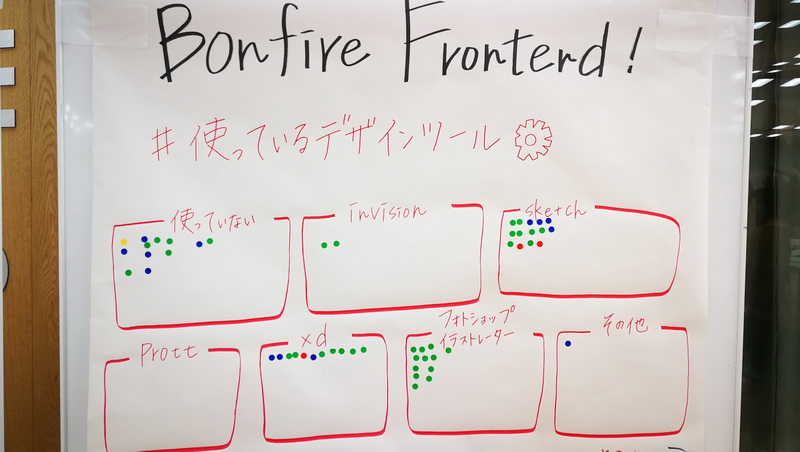 Bonfire Frontend!
#使っているデザインツール
使っていない
invision
sketch
Prott
xd
フォトショップ
イラストレーター
その他